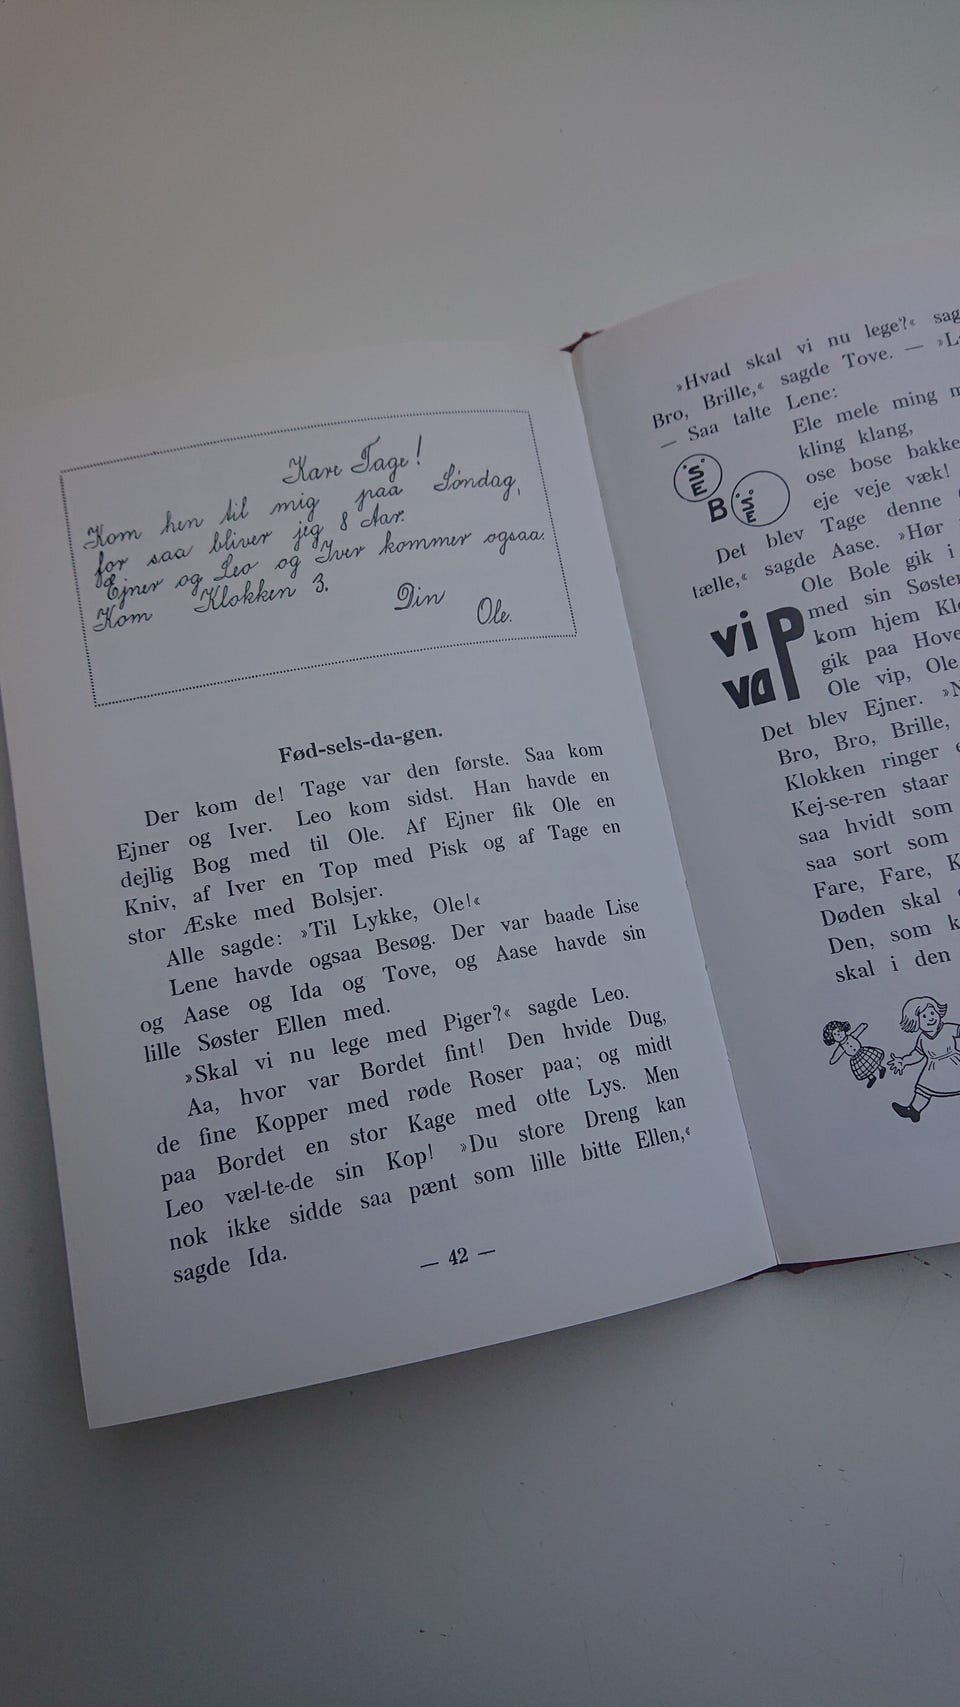 Kære Tage!
Kom hen til mig paa Søndag,
for saa bliver jeg 8 Aar.
Ejner og Leo og Iver kommer ogsaa.
Kom Klokken 3.
Din
Ole.
Fød-sels-da-gen.
Der kom de! Tage var den første. Saa kom
Ejner og Iver. Leo kom sidst. Han havde en
dejlig Bog med til Ole. Af Ejner fik Ole en
Kniv, af Iver en Top med Pisk og af Tage en
stor Æske med Bolsjer.
Alle sagde: »Til Lykke, Ole!«
Lene havde ogsaa Besøg. Der var baade Lise
og Aase og Ida og Tove, og Aase havde sin
lille Søster Ellen med.
»Skal vi nu lege med Piger?« sagde Leo.
Aa, hvor var Bordet fint! Den hvide Dug,
de fine Kopper med røde Roser paa; og midt
paa Bordet en stor Kage med otte Lys. Men
Leo væl-te-de sin Kop! »Du store Dreng kan
nok ikke sidde saa pænt som lille bitte Ellen,«
sagde Ida.
— 42 —
»Hvad skal vi nu lege?« sag
Bro, Brille,« sagde Tove. — »L
— Saa talte Lene:
Ele mele ming m
kling klang,
ose bose bakke
eje veje væk!
SE
B
SE
Det blev Tage denne
tælle,« sagde Aase. »Hør
Ole Bole gik i
med sin Søster
kom hjem Klo
gik paa Hove
Ole vip, Ole
vip
vap
Det blev Ejner. »N
Bro, Bro, Brille,
Klokken ringer e
Kej-se-ren staar
saa hvidt som
saa sort som
Fare, Fare, K
Døden skal
Den, som k
skal i den